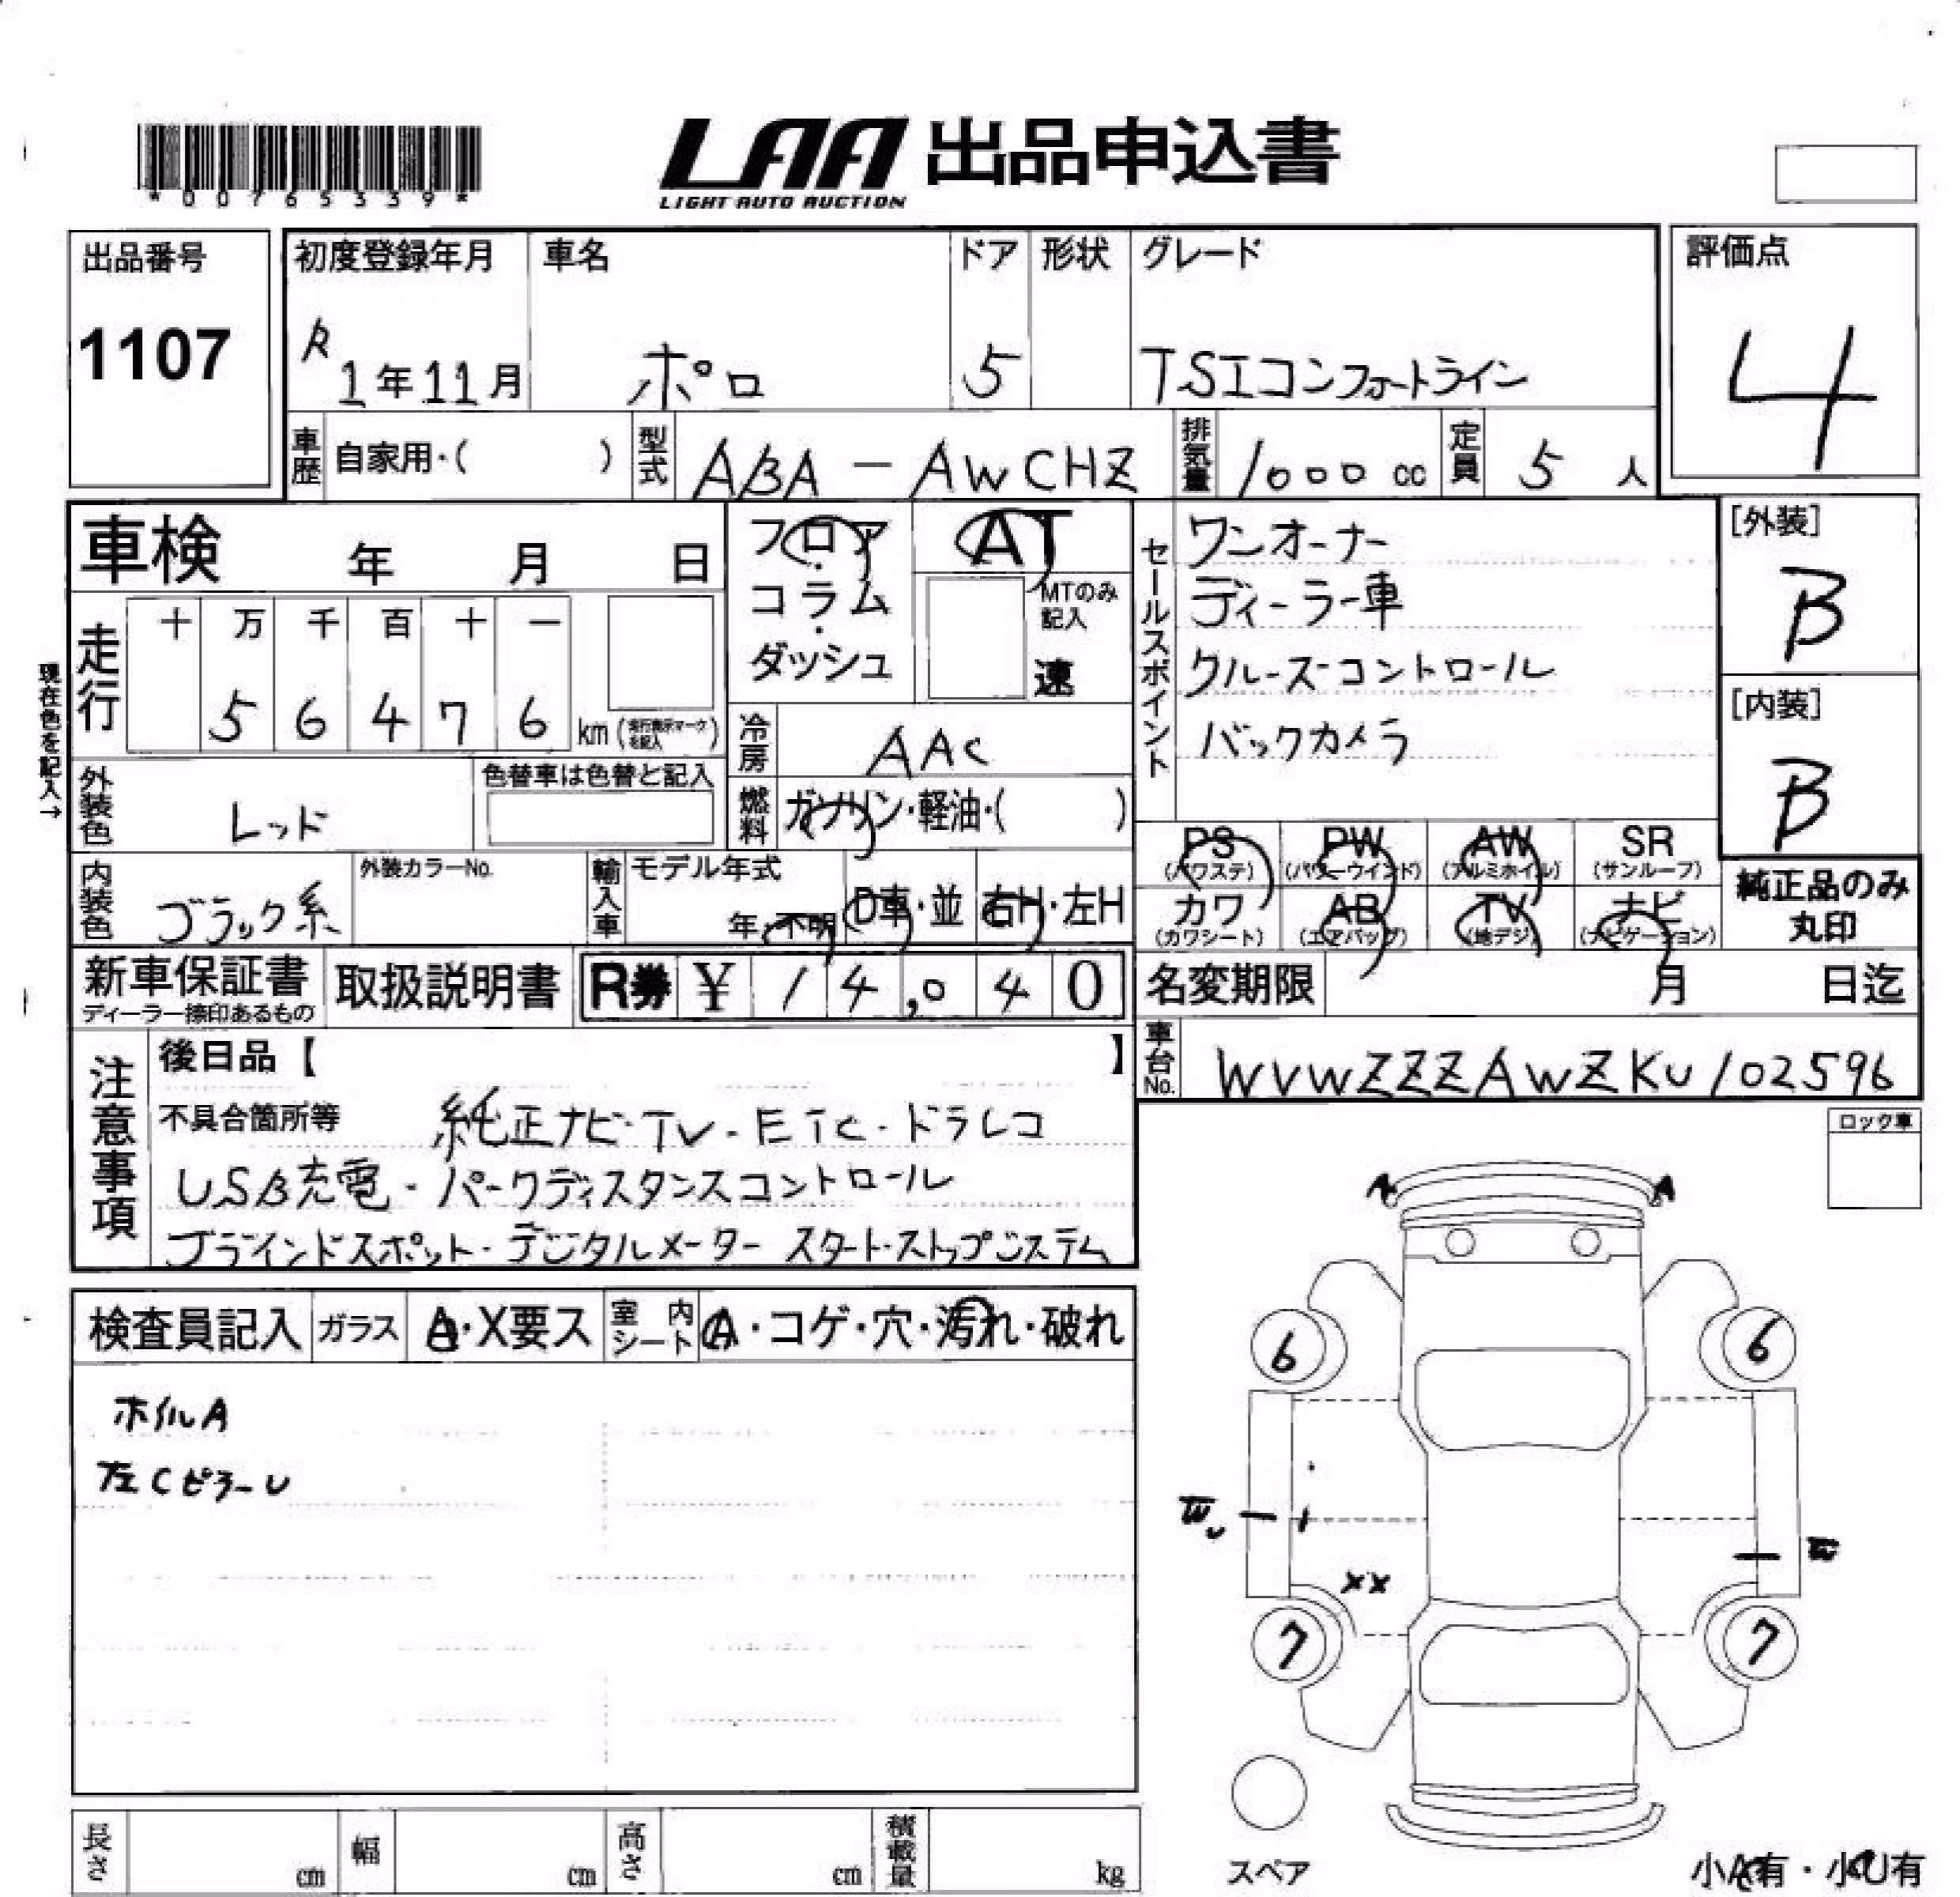 *00765339*
LAA 出品申込書
LIGHT AUTO AUCTION
出品番号
1107
初度登録年月
R 1年11月
車名
ポロ
ドア
5
形状
グレード
TSIコンフォートライン
評価点
4
車歴 自家用・( )
型式 ABA - AWCHZ
排気量 1000 cc
定員 5 人
車検 年 月 日
フロア・コラム・ダッシュ
AT
MTのみ記入
速
セールスポイント
ワンオーナー
ディーラー車
クルーズコントロール
バックカメラ
[外装]
B
[内装]
B
現在色を記入→
走行
十 万 千 百 十 一
5 6 4 7 6 km (走行表示マークを記入)
冷房 AAC
燃料 ガソリン・軽油・( )
外装色 レッド
色替車は色替と記入
内装色 ブラック系
外装カラーNo.
輸入車
モデル年式
年・不明
D車・並
右H・左H
PS (パワステ)
PW (パワーウインド)
AW (アルミホイル)
SR (サンルーフ)
カワ (カワシート)
AB (エアバッグ)
TV (地デジ)
ナビ (ナビゲーション)
純正品のみ丸印
新車保証書
ディーラー捺印あるもの
取扱説明書
R券 ¥ 14,040
名変期限 月 日迄
車台No. WVWZZZAWZKU102596
注意事項
後日品【 】
不具合箇所等 純正ナビ・TV・ETC・ドラレコ
USB充電・パークディスタンスコントロール
ブラインドスポット・デジタルメーター スタート・ストップシステム
ロック車
検査員記入
ガラス A・X要ス
室内シート A・コゲ・穴・汚れ・破れ
ホイルA
左CピラーU
A A
6 6
W U
W
XX
7 7
スペア
小A有・小U有
長さ cm
幅 cm
高さ cm
積載量 kg